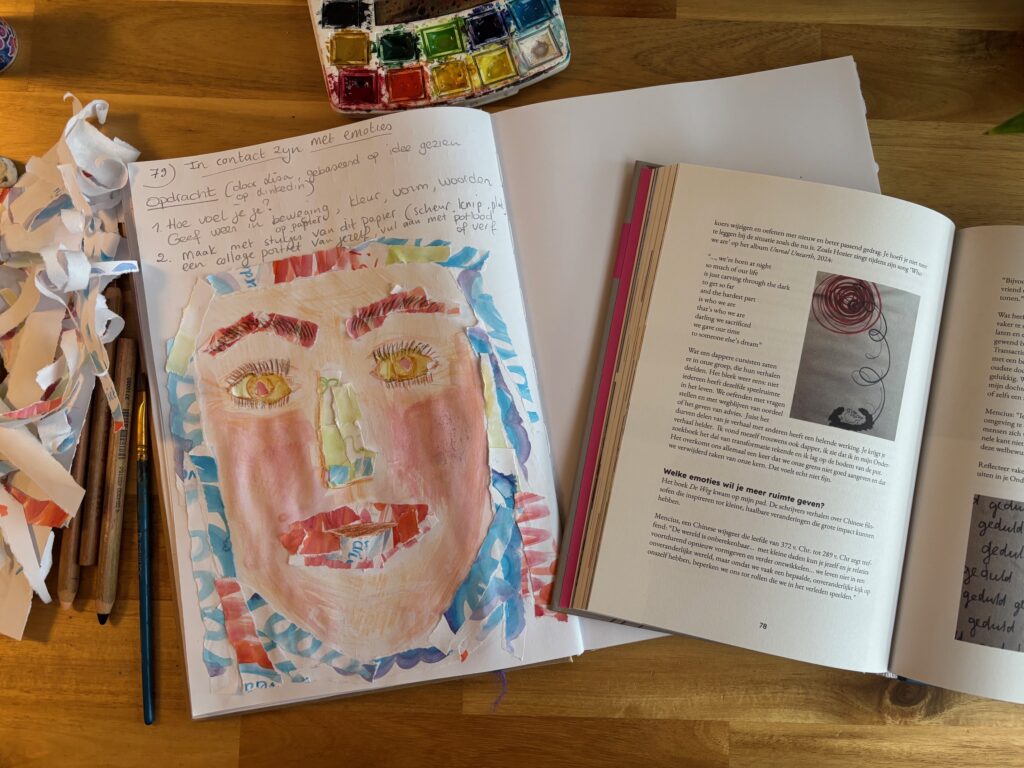 79) In contact zijn met emoties
Opdracht (door Lisa, gebaseerd op idee gezien
op linkedin)
1. Hoe voel je je?
Geef weer in beweging, kleur, vorm, woorden
op papier
2. Maak met stukjes van dit papier (scheur, knip, plak
een collage portret van jezelf, vul aan met potlood
of verf
koers wijzigen en oefenen met nieuw en beter passend gedrag. Je hoeft je niet neer
te leggen bij de situatie zoals die nu is. Zoals Hozier zingt tijdens zijn song 'Who
we are' op het album Unreal Unearth, 2024.
"... we're born at night
so much of our life
is just carving through the dark
to get so far
and the hardest part
is who we are
that's who we are
darling we sacrificed
we gave our time
to someone else's dream"
Wat een dappere cursisten zaten
er in onze groep, die hun verhalen
deelden. Het bleek weer eens: niet
iedereen heeft dezelfde speelruimte
in het leven. We oefenden met vragen
stellen en met wegblijven van oordeel
of het geven van advies. Juist het
durven delen van je verhaal met anderen heeft een helende werking. Je krijgt je
verhaal helder. Ik vond mezelf trouwens ook dapper, ik zie dat ik in mijn Onder-
zoekboek het dal van transformatie tekende en ik lag op de bodem van de put.
Het overkomt ons allemaal een keer dat we onze grens niet goed aangeven en dat
we verwijderd raken van onze kern. Dat voelt echt niet fijn.
Welke emoties wil je meer ruimte geven?
Het boek De Weg kwam op mijn pad. De schrijvers verhalen over Chinese filo-
sofen die inspireren tot kleine, haalbare veranderingen die grote impact kunnen
hebben.
Mencius, een Chinese wijsgeer die leefde van 372 v. Chr. tot 289 v. Chr zegt tref-
fend: "De wereld is onberekenbaar... met kleine daden kun je jezelf en je relaties
voortdurend opnieuw vormgeven en verder ontwikkelen... we leven niet in een
onveranderlijke wereld, maar omdat we vaak een bepaalde, onveranderlijke kijk op
onszelf hebben, beperken we ons tot rollen die we in het verleden speelden."
78
"Bijvoo
vriend
tonen.
Wat heef
vaker te
laten en
gewend b
Transactio
met een b
oudere do
gelukkig. W
mijn doch
of zelfs een
Mencius: "I
omgeving te
mensen zich
nele kant ni
deze welbewu
Reflecteer vake
uiten in je Ond
geduld
geduld
geduld
geduld
geduld
geduld
geduld